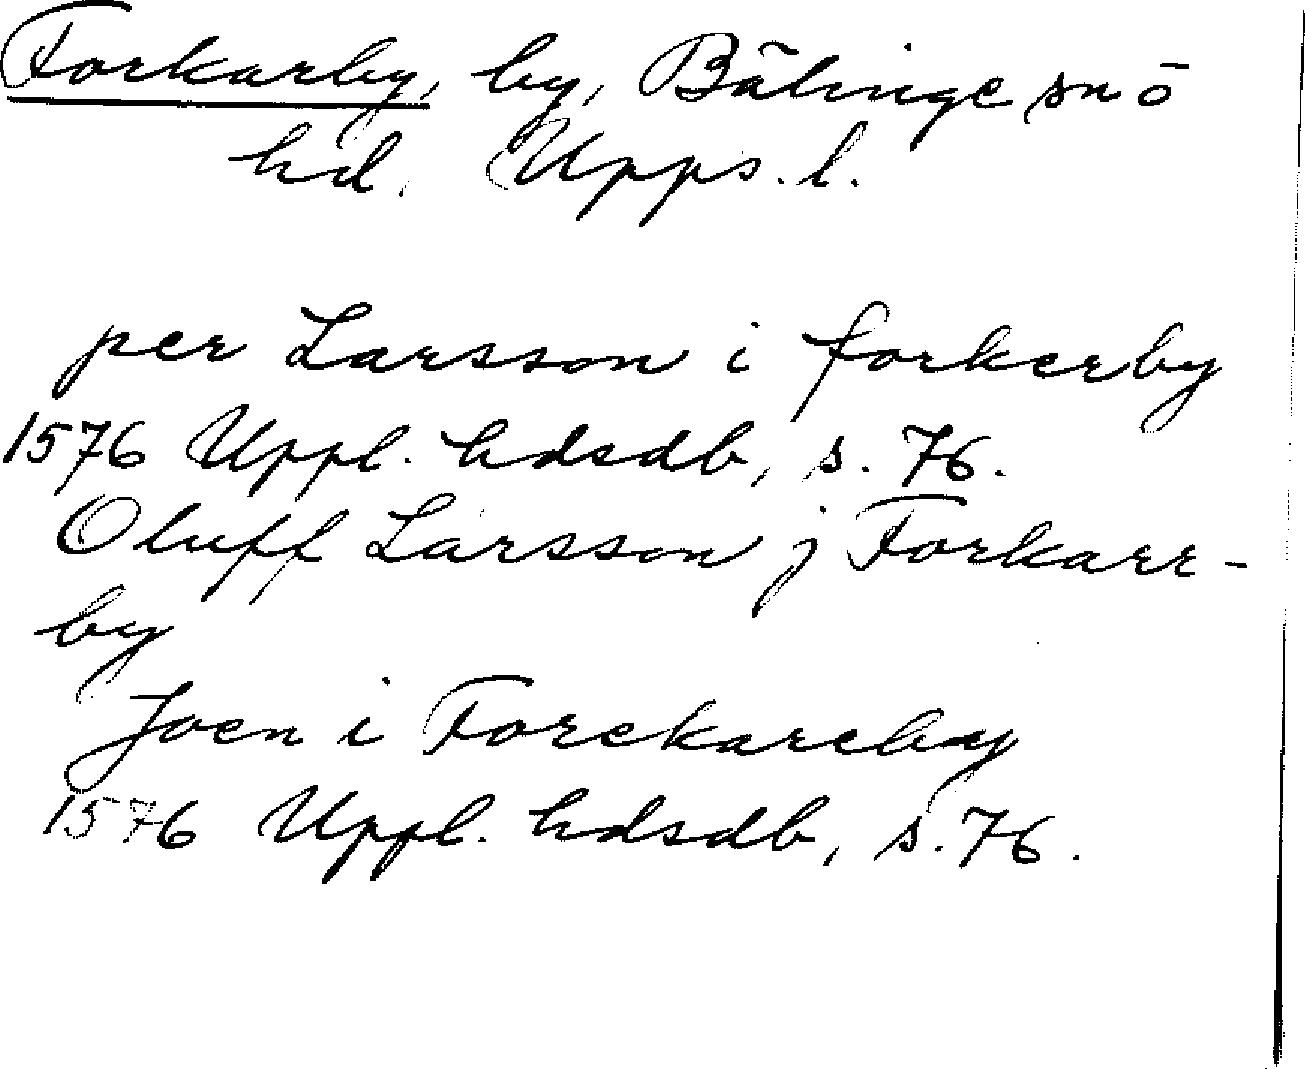 Forkarby, by, Bälinge sn o
hd. Upps. l.
per Larsson i forkerby
1576 Uppl. hdsdb, s. 76.
Oluff Larsson j Forkarr-
by
Joen i Forekareby
1576 Uppl. hdsdb, s. 76.